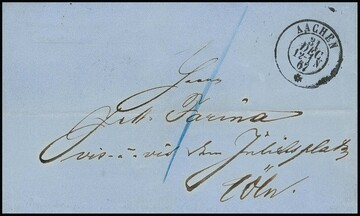 AACHEN
21
DEC
12-1N
67
Herrn
Joh. Farina
vis-à-vis dem Jülichsplatz
Cöln.